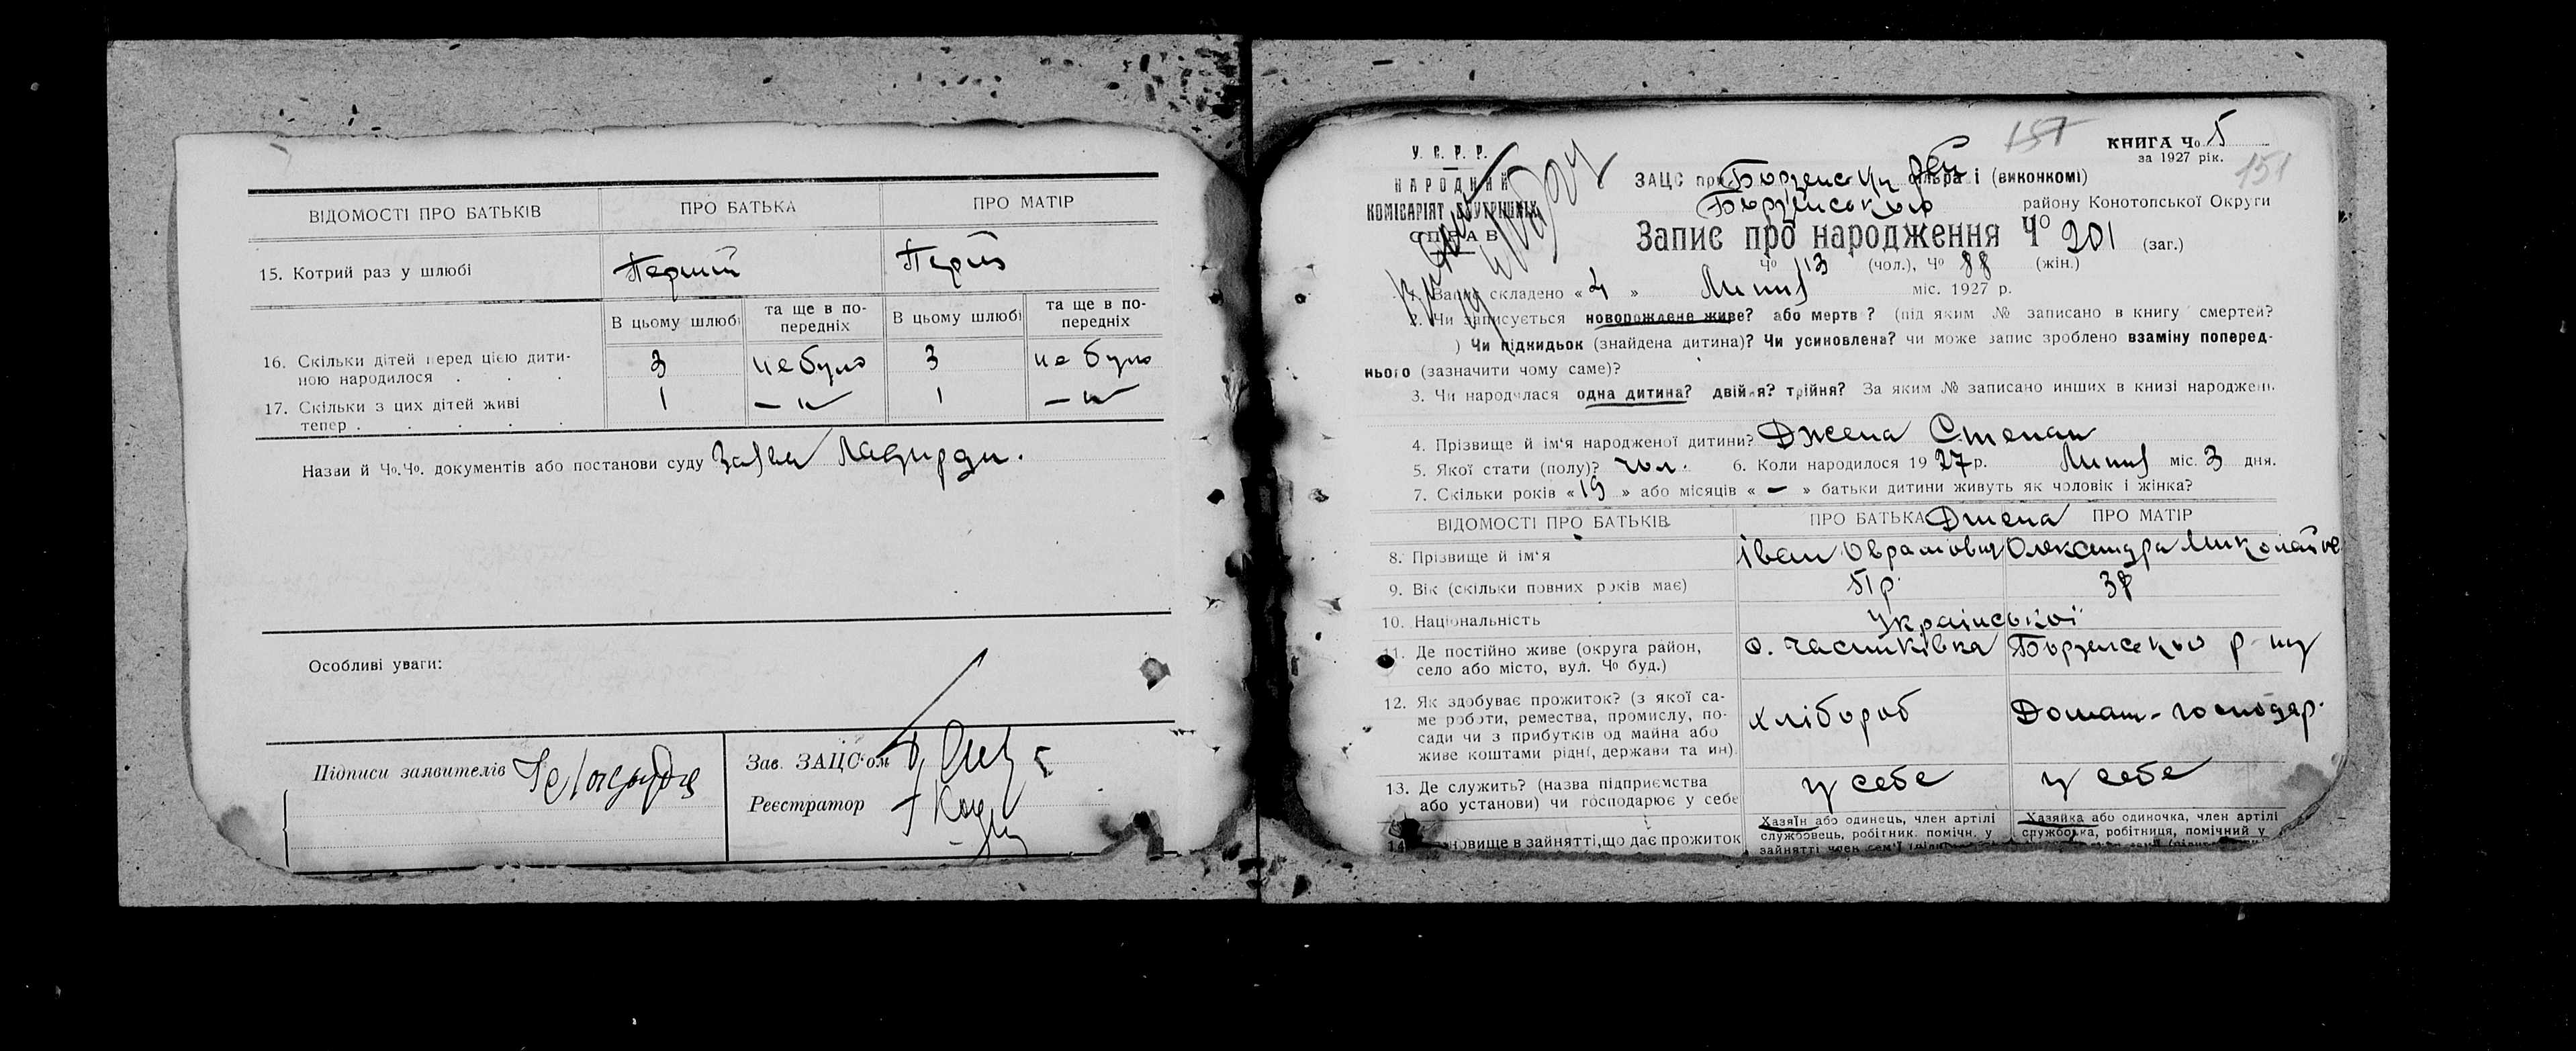 ВІДОМОСТІ ПРО БАТЬКІВ
ПРО БАТЬКА
ПРО МАТІР
15. Котрий раз у шлюбі
Перший
В цьому шлюбі
та ще в по-
передніх
В цьому шлюбі
та ще в по-
передніх
16. Скільки дітей перед цією дити-
ною народилося . . .
3
не було
3
не було
17. Скільки з цих дітей живі
тепер . . . . .
1
1
Назви й Чо.Чо. документів або постанови суду Заява
Особливі уваги:
Підписи заявителів
Зав. ЗАЦС'ом
Реєстратор
КНИГА Чо 5
за 1927 рік.
151
У. С. Р. Р.
НАРОДНИЙ
КОМІСАРІЯТ ВНУТРІШНІХ
СПРАВ
ЗАЦС при сільраді (виконкомі)
Борзенського району Конотопської Округи
Запис про народження Чо 201 (заг.)
Чо 113 (чол.), Чо 88 (жін.)
1. Запис складено « 4 » Липня міс. 1927 р.
2. Чи записується новорождене живе? або мертве? (під яким № записано в книгу смертей?
) Чи підкидьок (знайдена дитина)? Чи усиновлена? чи може запис зроблено взаміну поперед-
нього (зазначити чому саме)?
3. Чи народилася одна дитина? двійня? трійня? За яким № записано инших в книзі народжен.
4. Прізвище й ім'я народженої дитини? Джепа Степан
5. Якої стати (полу)? чол. 6. Коли народилося 1927 р. Липня міс. 3 дня.
7. Скільки років « 19 » або місяців « — » батьки дитини живуть як чоловік і жінка?
ВІДОМОСТІ ПРО БАТЬКІВ
ПРО БАТЬКА
Джепа
ПРО МАТІР
8. Прізвище й ім'я
Іван Оврамович
Олександра
9. Вік (скільки повних років має)
51 р.
38
10. Національність
Української
11. Де постійно живе (округа район,
село або місто, вул. Чо буд.)
с. Часниківка Борзенського р-ну
12. Як здобуває прожиток? (з якої са-
ме роботи, ремества, промислу, по-
сади чи з прибутків од майна або
живе коштами рідні, держави та ин)
хлібороб
Домаш-господар.
13. Де служить? (назва підприємства
або установи) чи господарює у себе
у себе
у себе
14. новище в зайнятті, що дає прожиток
Хазяїн або одинець, член артілі
службовець, робітник. помічн. у
зайнятті член сем'ї
Хазяйка або одиночка, член артілі
службовка, робітниця, помічний у